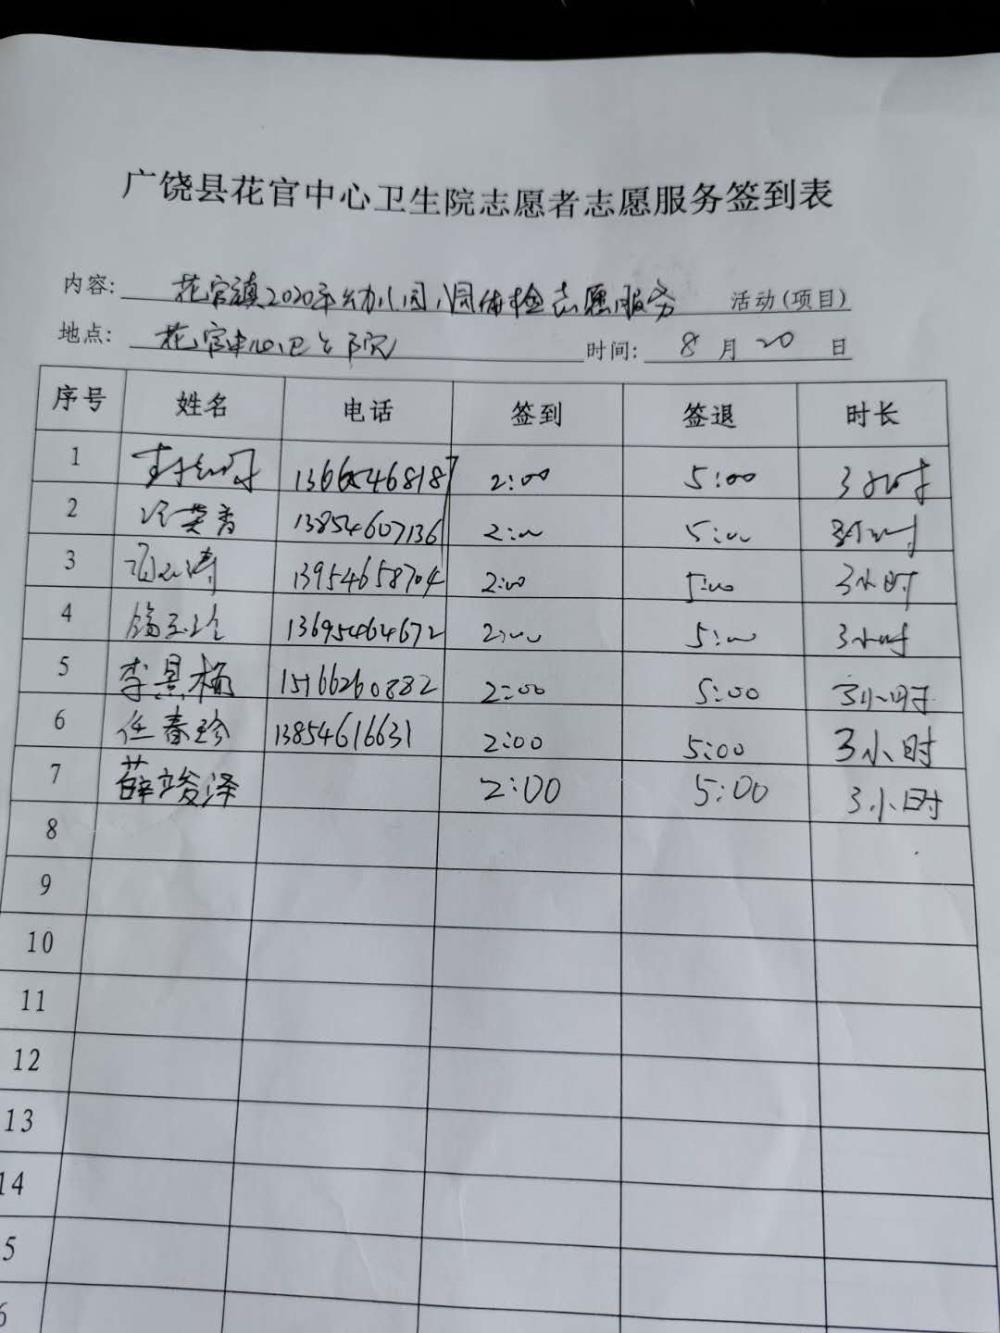 广饶县花官中心卫生院志愿者志愿服务签到表
内容: 花官镇2020年幼儿园入园体检志愿服务 活动(项目)
地点: 花官中心卫生院 时间: 8 月 20 日
序号 姓名 电话 签到 签退 时长
1 2:00 5:00 3小时
2 13854607136 2:00 5:00 3小时
3 13954658704 2:00 5:00 3小时
4 13695464672 2:00 5:00 3小时
5 李景梅 15166260882 2:00 5:00 3小时
6 任春珍 13854616631 2:00 5:00 3小时
7 薛竣泽 2:00 5:00 3小时
8
9
10
11
12
13
14
5
6